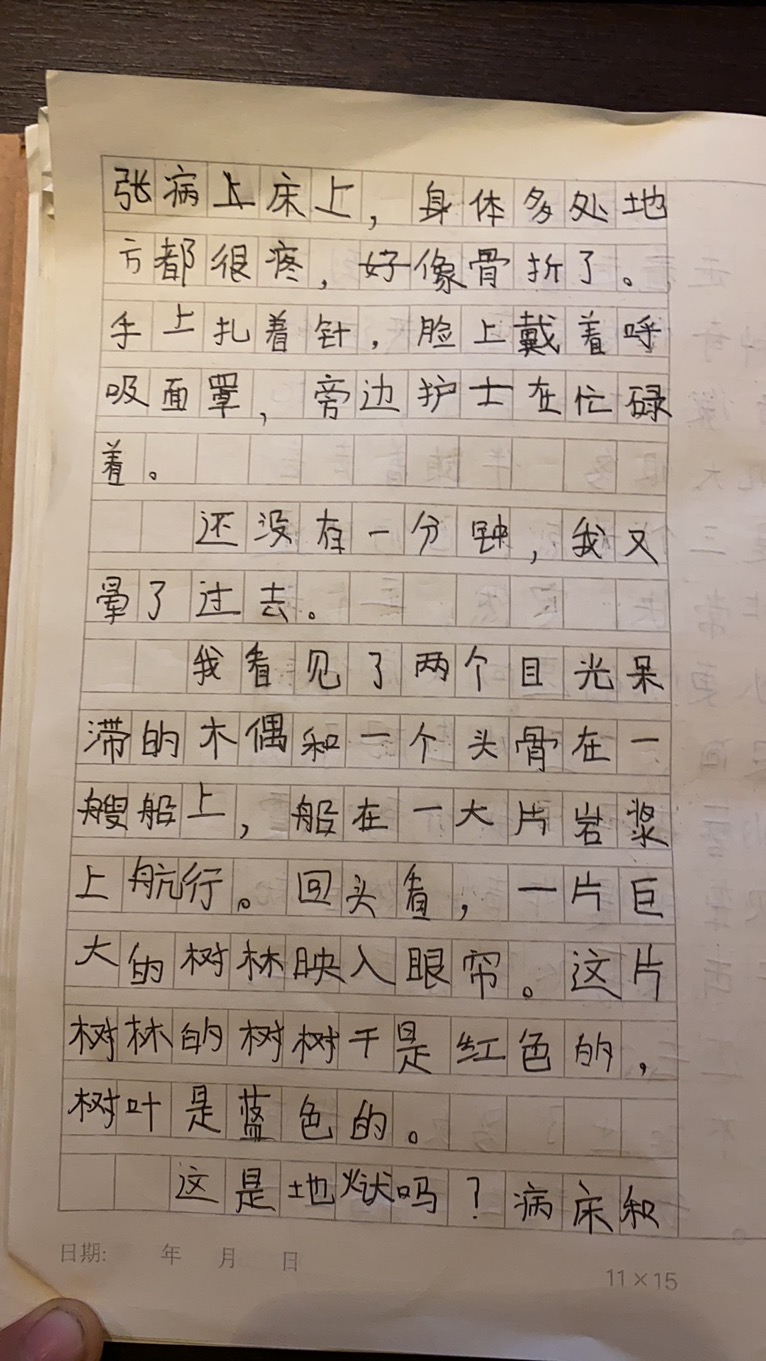 张病上床上，身体多处地
方都很疼，好像骨折了。
手上扎着针，脸上戴着呼
吸面罩，旁边护士在忙碌
着。
还没有一分钟，我又
晕了过去。
我看见了两个目光呆
滞的木偶和一个头骨在一
艘船上，船在一大片岩浆
上航行。回头看，一片巨
大的树林映入眼帘。这片
树林的树树干是红色的，
树叶是蓝色的。
这是地狱吗？病床和
日期: 年 月 日
11×15